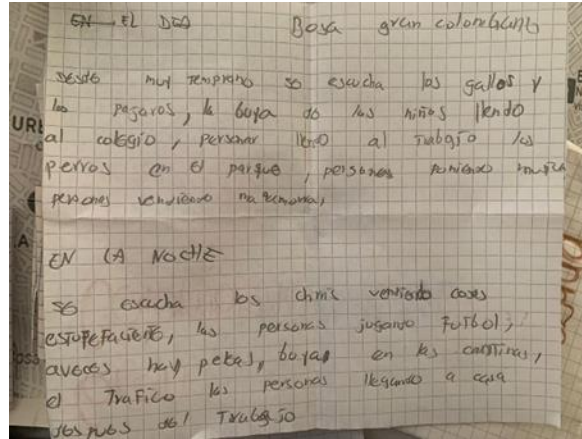 EN EL DIA Bosa gran colombiano
desde muy temprano se escucha los gallos y
los pajaros, la buya de los niños llendo
al colegio, personar llendo al Trabajo los
perros en el parque, personas poniendo musica
personas vendiendo
EN LA NOCHE
se escucha los vendiendo cosas
las personas jugando Futbol,
aveces hay peleas, buyas en las cantinas,
el Trafico las personas llegando a casa
despues del Trabajo